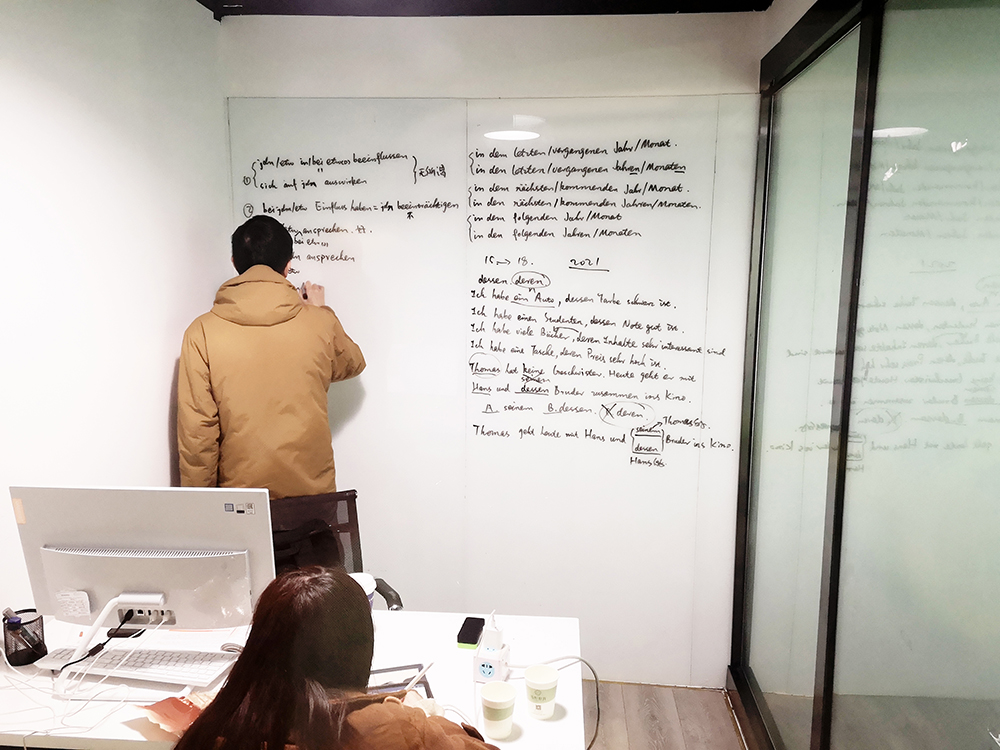 ① { jdn/etw in/bei etwas beeinflussen
sich auf jdn auswirken
② bei jdm/etw Einfluss haben = jdn beeinträchtigen
不
ansprechen
bei etwas
ansprechen
{ in dem letzten/vergangenen Jahr/Monat.
in den letzten/vergangenen Jahren/Monaten
{ in dem nächsten/kommenden Jahr/Monat.
in den nächsten/kommenden Jahren/Monaten.
{ in dem folgenden Jahr/Monat
in den folgenden Jahren/Monaten
18. 2021
dessen deren
Ich habe ein Auto, dessen Farbe schwarz ist.
Ich habe einen Studenten, dessen Note gut ist.
Ich habe viele Bücher, deren Inhalte sehr interessant sind
Ich habe eine Tasche, deren Preis sehr hoch ist.
Thomas hat keine Geschwister. Heute geht er mit
seinem
Hans und dessen Bruder zusammen ins Kino.
A seinem B. dessen. X deren.
→ Thomas
Thomas geht heute mit Hans und { seinem
dessen } Bruder ins Kino.
Hans